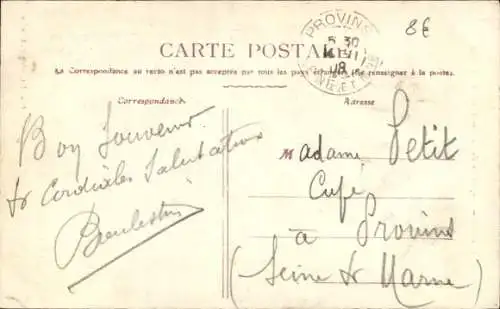 8€
PROVINS
5 30
18
CARTE POSTALE
La Correspondance au recto n'est pas acceptée par tous les pays étrangers (Se renseigner à la poste.)
Correspondance
Adresse
Bon Souvenir
& Cordiales Salutations
Madame Petit
Café
à Provins
(Seine & Marne)